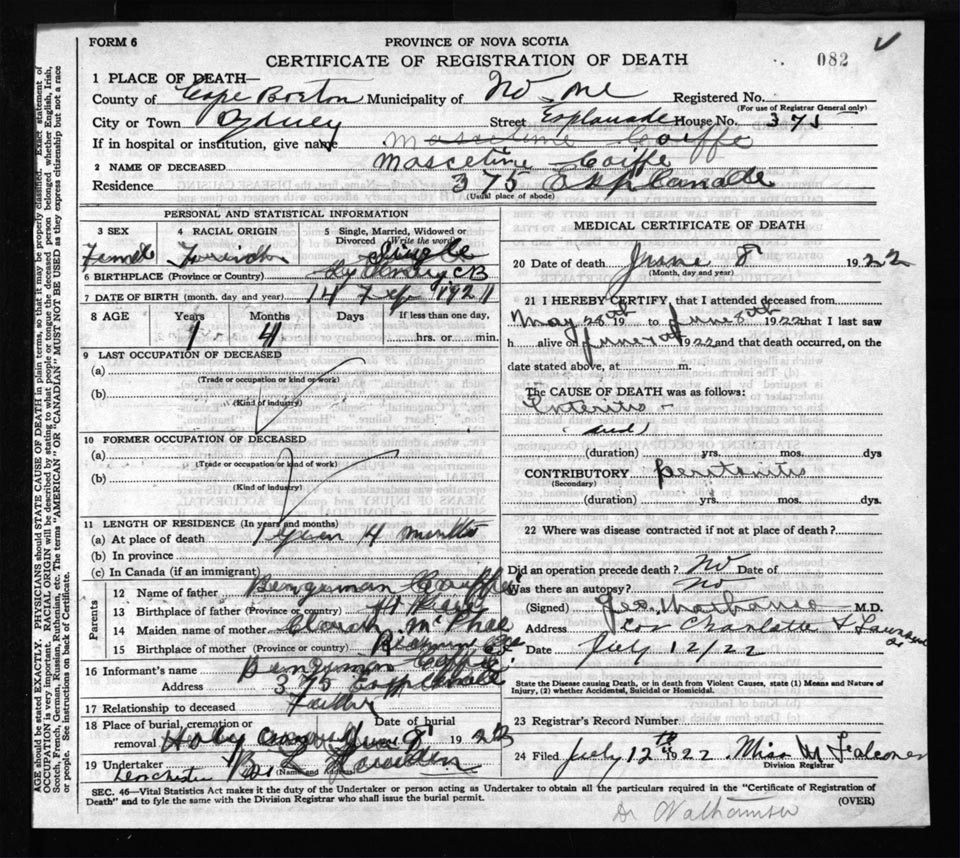 FORM 6
PROVINCE OF NOVA SCOTIA
CERTIFICATE OF REGISTRATION OF DEATH
082
1 PLACE OF DEATH—
County of Cape Breton Municipality of Registered No.
(For use of Registrar General only)
City or Town Sydney Street Esplanade House No. 375
If in hospital or institution, give name
2 NAME OF DECEASED
Residence 375 Esplanade
(Usual place of abode)
PERSONAL AND STATISTICAL INFORMATION
3 SEX 4 RACIAL ORIGIN 5 Single, Married, Widowed or Divorced (Write the word)
Female French Single
6 BIRTHPLACE (Province or Country) Sydney CB
7 DATE OF BIRTH (month, day and year) 14 1921
8 AGE Years Months Days If less than one day,
1 4 hrs. or min.
9 LAST OCCUPATION OF DECEASED
(a)
(Trade or occupation or kind of work)
(b)
(Kind of industry)
10 FORMER OCCUPATION OF DECEASED
(a)
(Trade or occupation or kind of work)
(b)
(Kind of industry)
11 LENGTH OF RESIDENCE (In years and months)
(a) At place of death 1 year 4 months
(b) In province
(c) In Canada (if an immigrant)
Parents
12 Name of father
13 Birthplace of father (Province or country)
14 Maiden name of mother McPhee
15 Birthplace of mother (Province or country)
16 Informant's name
Address 375 Esplanade
17 Relationship to deceased Father
18 Place of burial, cremation or removal Date of burial
Holy 19
19 Undertaker
(Name and Address)
MEDICAL CERTIFICATE OF DEATH
20 Date of death June 8 1922
(Month, day and year)
21 I HEREBY CERTIFY, that I attended deceased from
May 28th 19 to June 8th 1922 that I last saw
h alive on June 1922 and that death occurred, on the
date stated above, at m.
The CAUSE OF DEATH was as follows:
Enteritis
and
(duration) yrs. mos. dys
CONTRIBUTORY peritonitis
(Secondary)
(duration) yrs. mos. dys.
22 Where was disease contracted if not at place of death?
Did an operation precede death? No Date of
Was there an autopsy? No
(Signed) M.D.
Address Cor Charlotte &
Date July 12/22
State the Disease causing Death, or in death from Violent Causes, state (1) Means and Nature of Injury, (2) whether Accidental, Suicidal or Homicidal.
23 Registrar's Record Number
24 Filed July 12th 1922 Miss M Falconer
Division Registrar
SEC. 46—Vital Statistics Act makes it the duty of the Undertaker or person acting as Undertaker to obtain all the particulars required in the "Certificate of Registration of
Death" and to fyle the same with the Division Registrar who shall issue the burial permit.
(OVER)
AGE should be stated EXACTLY. PHYSICIANS should STATE CAUSE OF DEATH in plain terms, so that it may be properly classified. Exact statement of
OCCUPATION is very important. RACIAL ORIGIN will be described by stating to what people or tongue the deceased person belonged whether English, Irish,
Scotch, French, German, Russian, Ruthenian, etc. The terms "AMERICAN" OR "CANADIAN" MUST NOT BE USED as they express citizenship but not a race
or people. See instructions on back of Certificate.